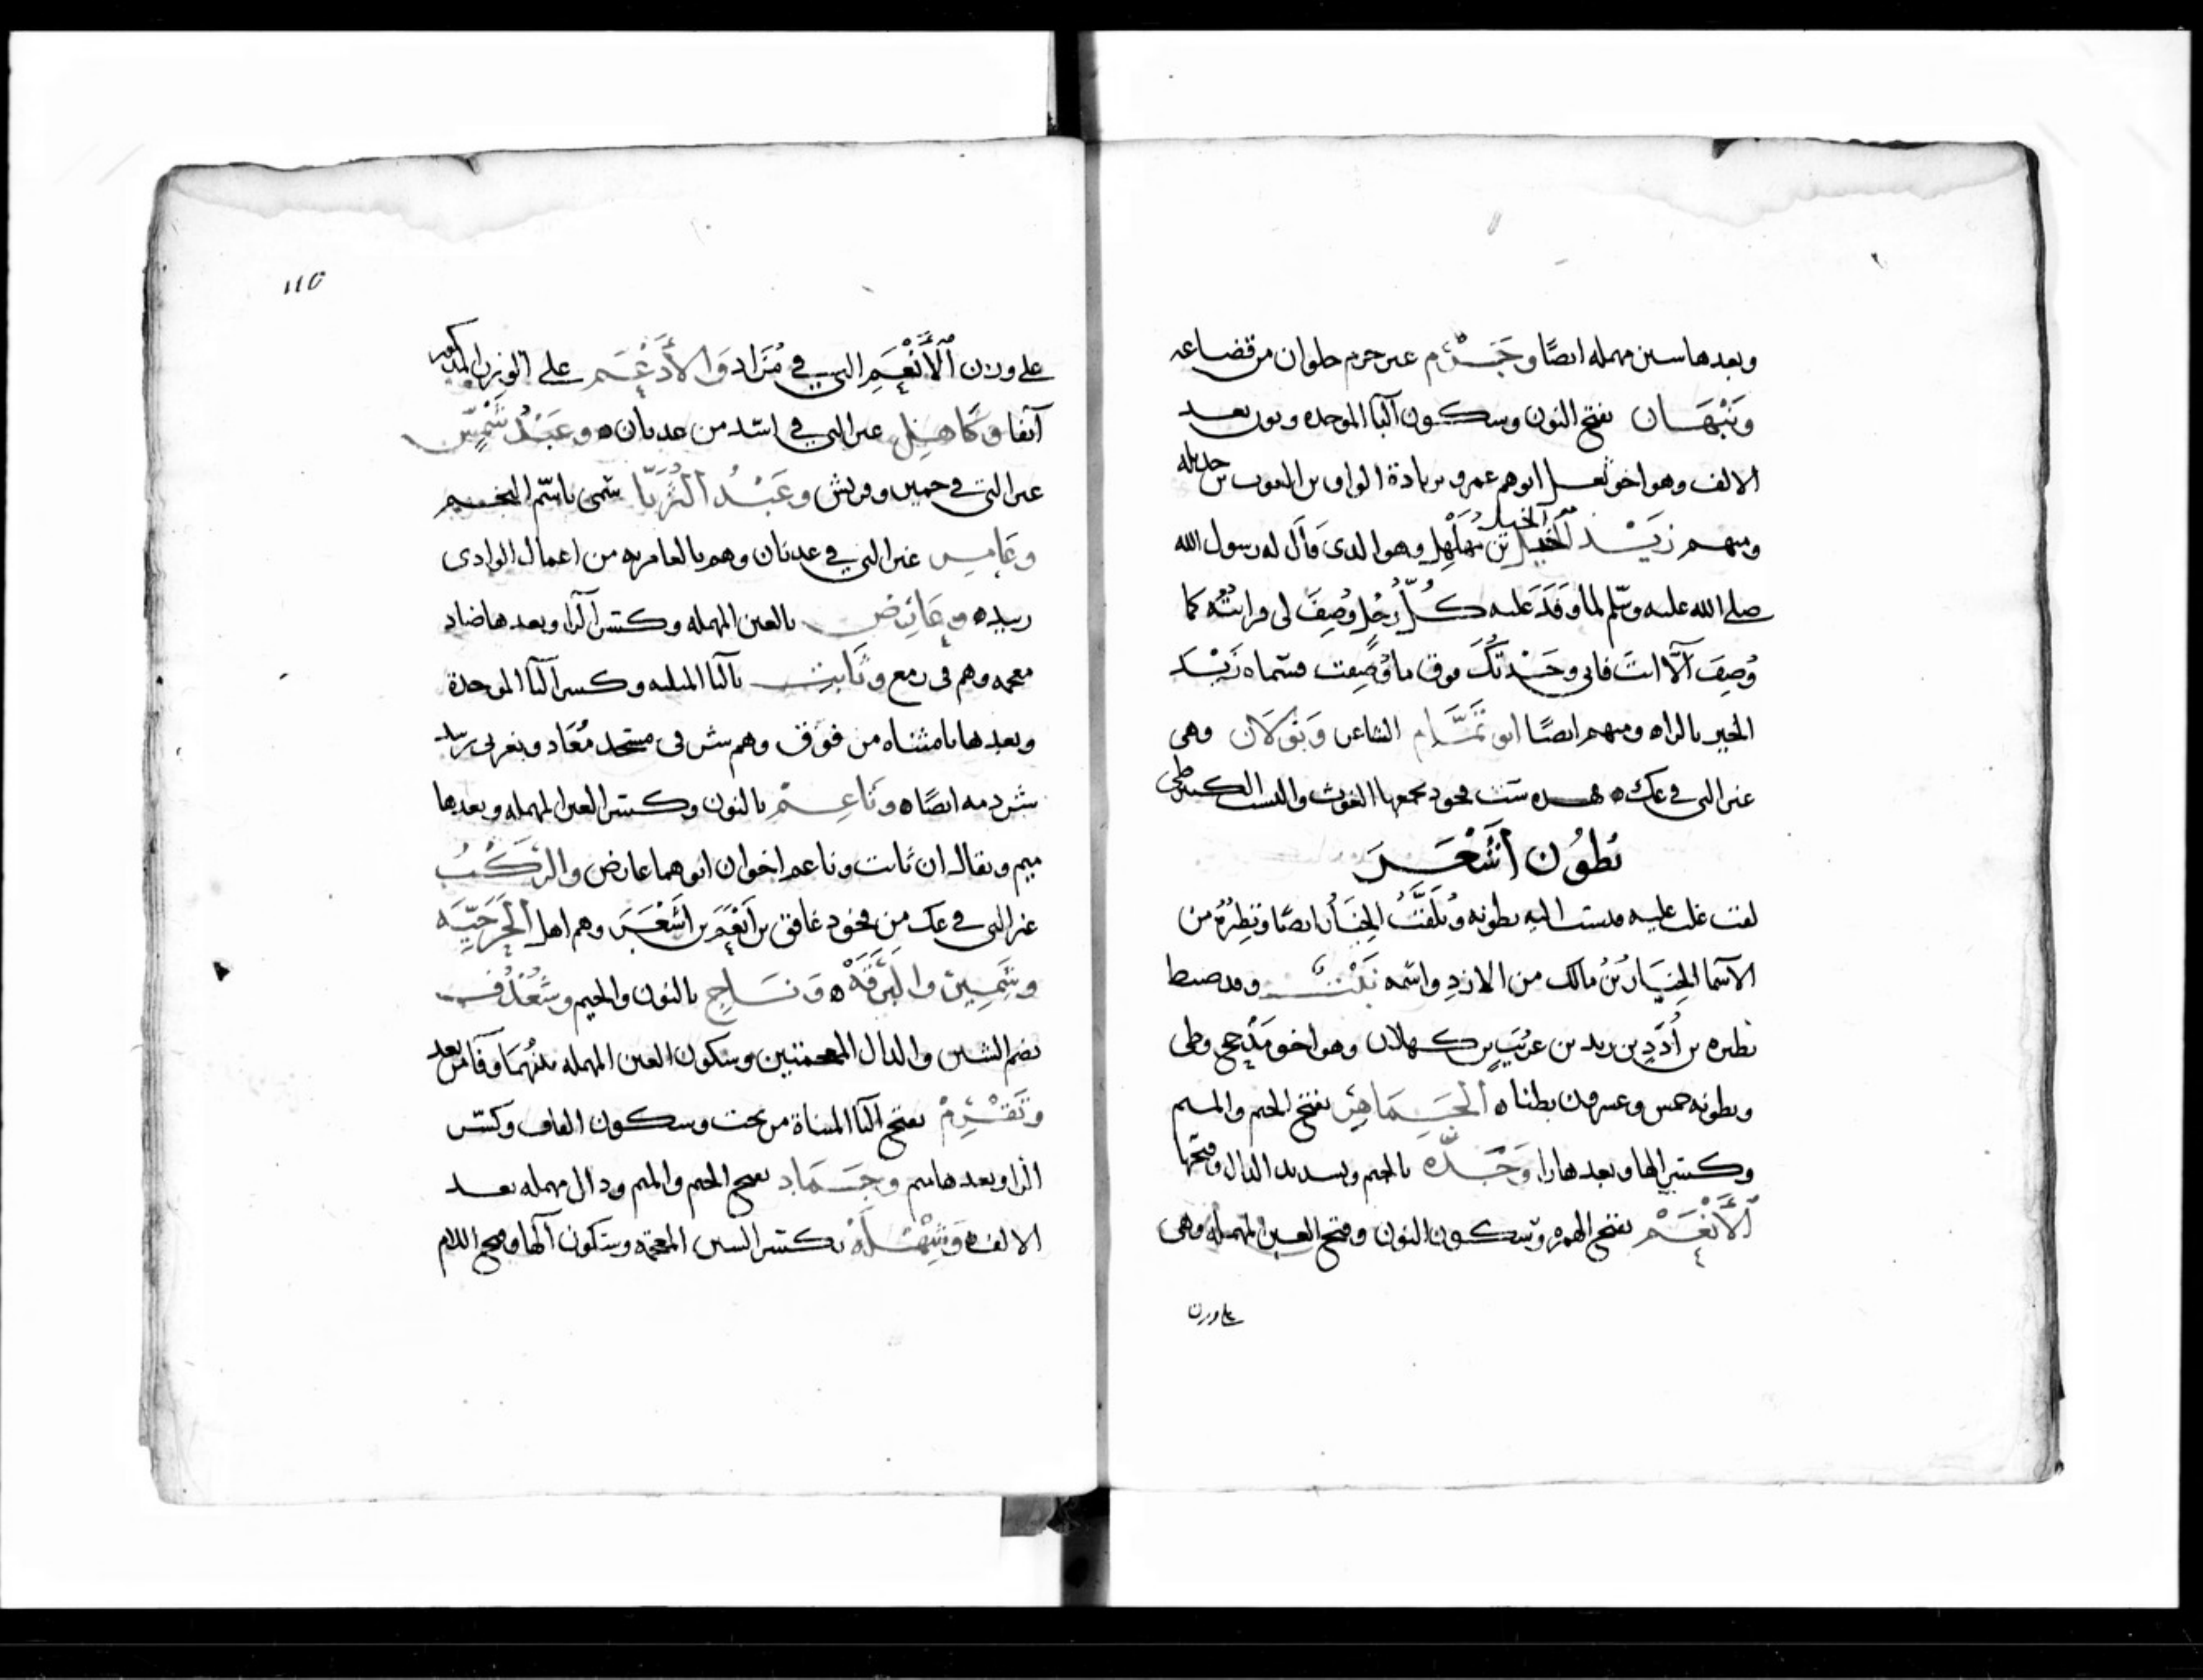 وبعدها سين مهمله ايضًا وجَرْم عير جرم حلوان من قضاعه
ونَبْهَان بفتح النون وسكون البا الموحده ونون بعد
الالف وهو اخو ثعل ابوهم عمرو بزيادة الواو بن الغوث بن جديله
ومنهم زَيْد الخيل بن مُهَلْهِل وهو الدى قال له رسول الله
صلى الله عليه وسلم لما وَفَدَ عليه كُلُّ رجُلٍ وُصِفَ لى فرايتُه كما
وُصِفَ الّا انتَ فانى وَجَدْتُكَ فوق ما وُصِفت فسماه زَيْد
الخير بالراه ومنهم ايضًا ابو تَمَّام الشاعر وبَوْلَان وهى
غير التى في عك ه هده ست فخود يجمعها الغوث والنسب الكبير طى
بُطوُن أَشْعَر
لقب غلب عليه فنسب اليه بطونه ويُلَقَّبُ الخِيَار ايضًا ونَظِيرُهُ من
الاسما الخِيَارُ بنُ مالك من الازدِ واسمه نَبْت وقد ضبط
نظيره بن أُدَدِ بن زيد بن عَرِيبِ بن كهلان وهو اخو مَذْحِج وطى
وبطونه خمس وعسرون بطنا ه الجَمَاهِر بفتح الجيم والميم
وكسر الها وبعدها را وجَدَّه بالجيم وبسديد الدال وفتحها
الأَنْعَم بفتح الهمزه وسكون النون وفتح العين المهمله وهى
على وزن
116
على وزن الأَنْعَمِ التى في مُرَاد والأَدْغَم على الوزن المذكور
آنفا وكَاهِل غير التى في اسد من عدنان ه وعَبْدُ شَمْس
غير التى في حمير وقريش وعَبْدُ الثُّرَيَّا سمى باسم النجم
وعَامِر غير التى في عدنان وهم بالعامريه من اعمال الوادى
زبيد ه وعَارِض بالعين المهمله وكسر الرا وبعدها ضاد
معجمه وهم فى رمع وثَابِت بالثا المثلثه وكسر البا الموحدة
وبعدها تا مثناه من فوق وهم فى مسجد مُعَاد وبغربى زبيد
شردمه ايضًا ه ونَاعِم بالنون وكسر العين المهمله وبعدها
ميم ويقال ان ثابت وناعم اخوان ابوهما عارض والرَكْبُ
غير التى في عك من فخود غافق بن أَنْعَم بن أَشْعَر وهم اهل
بالنون والجيم وشُعْذُف
بضم الشين والدال المعجمتين وسكون العين المهمله بينهما وفا من بعد
ويَقْرِمْ بفتح اليا المثناة من تحت وسكون القاف وكسر
الرا وبعدها ميم وجَمَاد بفتح الجيم والميم ودال مهمله بعد
الالف ه وشِهْلَهْ بكسر الشين المعجمه وسكون الها وفتح اللام